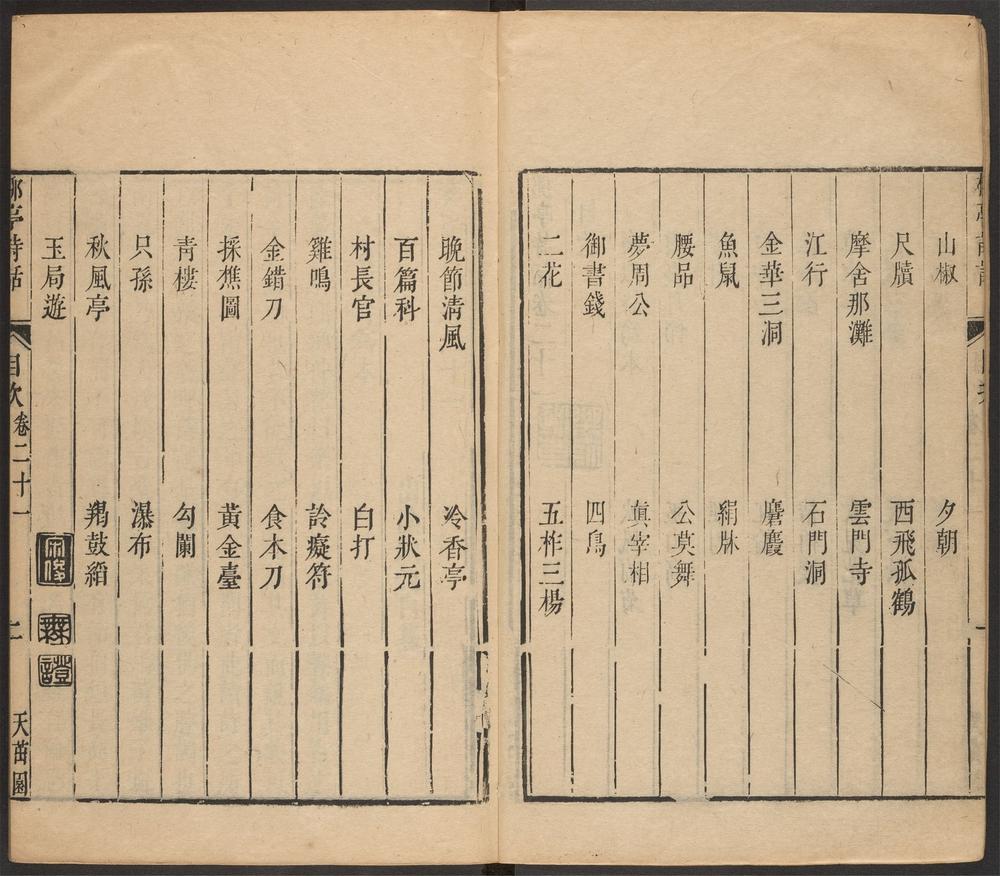 山椒 夕朝
尺牘 西飛孤鶴
摩舍那灘 雲門寺
江行 石門洞
金華三洞 麐麌
魚鼠 絹牀
腰品 公莫舞
夢周公 眞宰相
御書錢 四鳥
二花 五柞三楊
晚節清風 冷香亭
百篇科 小狀元
村長官 白打
雞鳴 詅癡符
金錯刀 食木刀
採樵圖 黃金臺
青樓 勾闌
只孫 瀑布
秋風亭 羯鼓緭
玉局遊
目次 卷二十一 二 天茁園